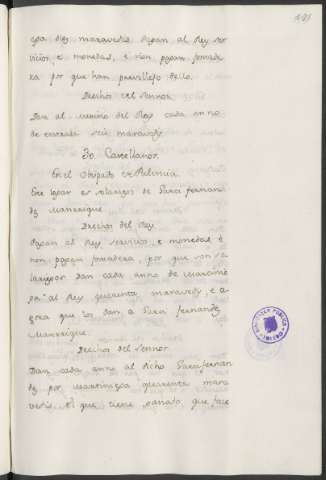 gora diez maravedis. pagan al Rey ser
vicios, e monedas, e non pagan fonsade
ra por que han previllejo dello.
Derechos del sennor.
Dan al merino del Rey cada anno
de entrada seis maravedis
30. Castellanos.
En el Obispado de Palencia
Este logar es solariego de Garci fernan
dez Manrrique
Derechos del Rey.
Pagan al Rey servicios, e monedas é
non pagan fonsadera, por que son so
lariegos. Dan cada anno de Marcinie
ga al Rey quarenta maravedis, e a
gora que los dan a Garci fernandez
Manrrique.
Derechos del sennor.
Dan cada anno al dicho Garci fernan
dez por martiniega quarenta mara
vedis. El que tiene ganado, que face